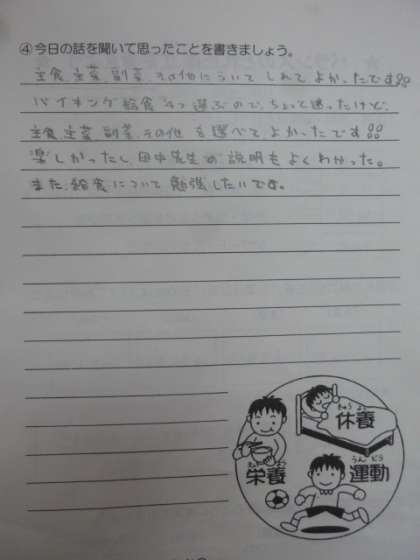 ④今日の話を聞いて思ったことを書きましょう。
主食、主菜、副菜、その他について しれて よかったです!!
バイキング給食 で、ちょっと迷ったけど、
主食、主菜、副菜、その他 を選べて よかったです!!
楽しかったし、田中先生の 説明も よくわかった。
また、給食について 勉強したいです。
きゅう よう
休養
えい よう
栄養
うん どう
運動